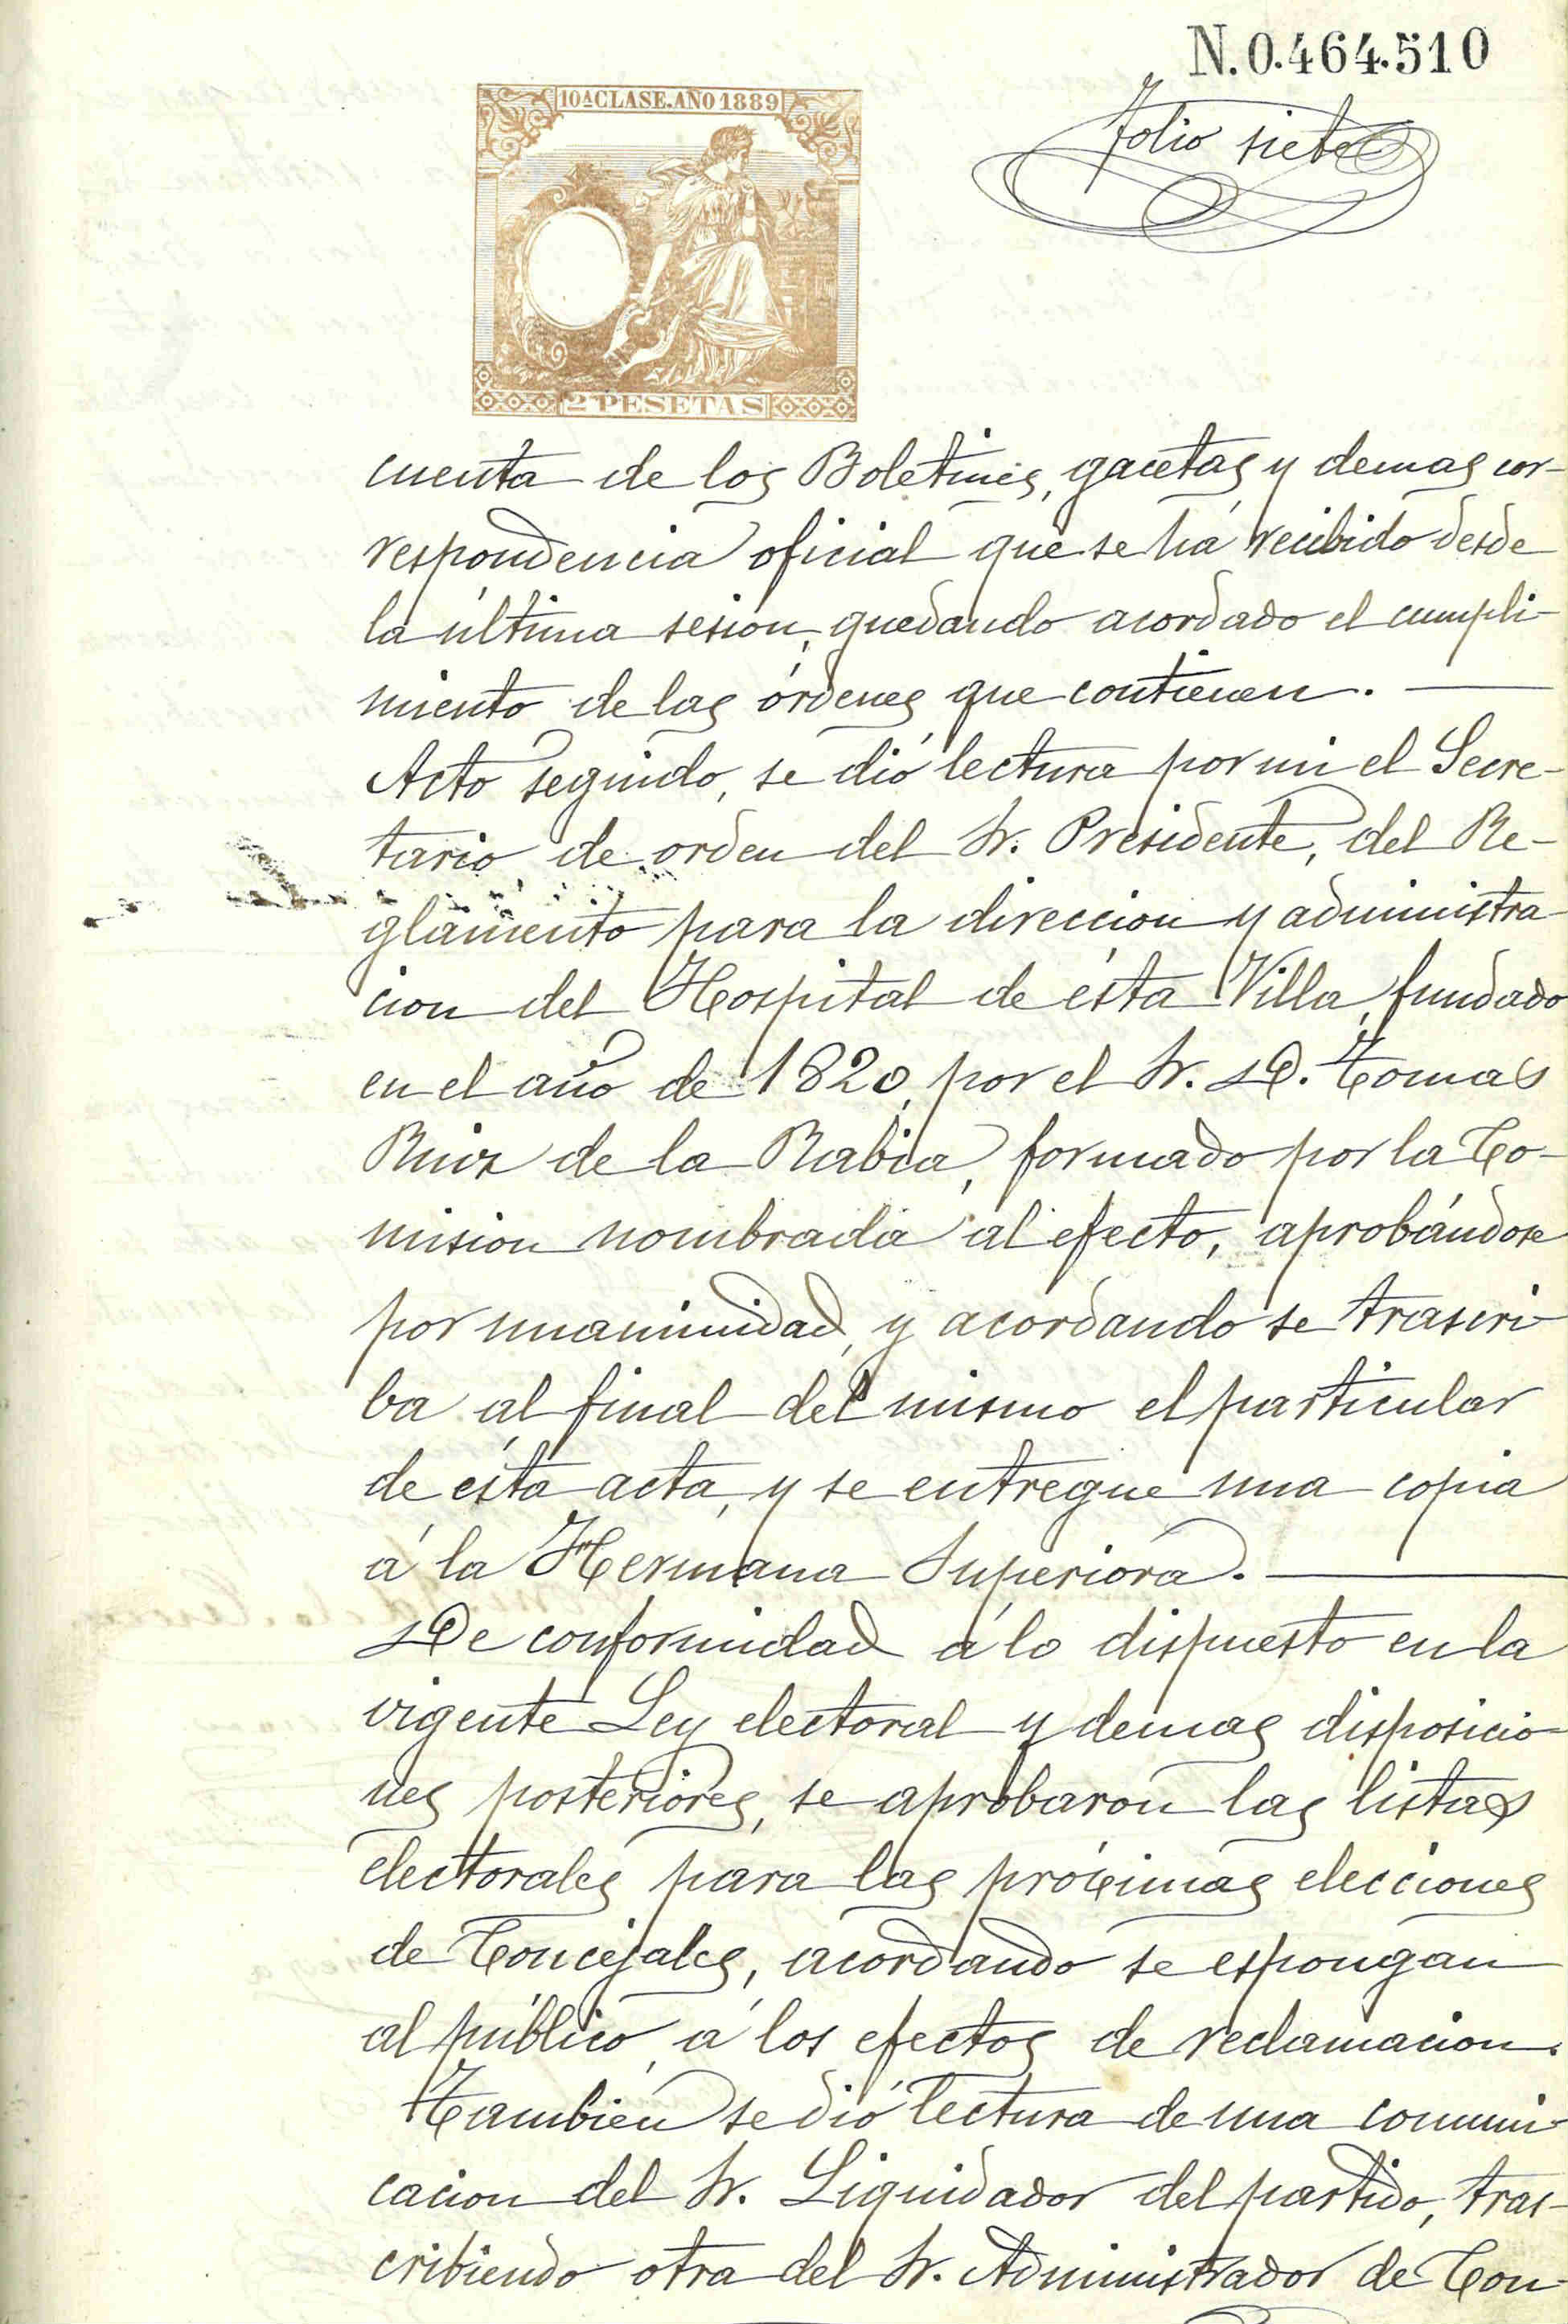 N.0.464.510
Folio siete
10ª CLASE. AÑO 1889
2 PESETAS
cuenta de los Boletines, gacetas y demas cor-
respondencia oficial que se há recibido desde
la última sesion, quedando acordado el cumpli-
miento de las órdenes que contienen.
Acto seguido, se dió lectura por mi el Secre-
tario de orden del Sr. Presidente, del Re-
glamento para la direccion y administra-
cion del Hospital de ésta Villa, fundado
en el año de 1820, por el Sr. D. Tomas
Ruiz de la Rabia, formado por la Co-
mision nombrada al efecto, aprobándose
por unanimidad, y acordando se trascri-
ba al final del mismo el particular
de ésta acta, y se entregue una copia
á la Hermana Superiora.
De conformidad á lo dispuesto en la
vigente Ley electoral y demas disposicio-
nes posteriores, se aprobaron las listas
electorales para las próximas elecciones
de Concejales, acordando se espongan
al público, á los efectos de reclamacion.
Tambien se dió lectura de una comuni-
cacion del Sr. Liquidador del partido, tras-
cribiendo otra del Sr. Administrador de Con-